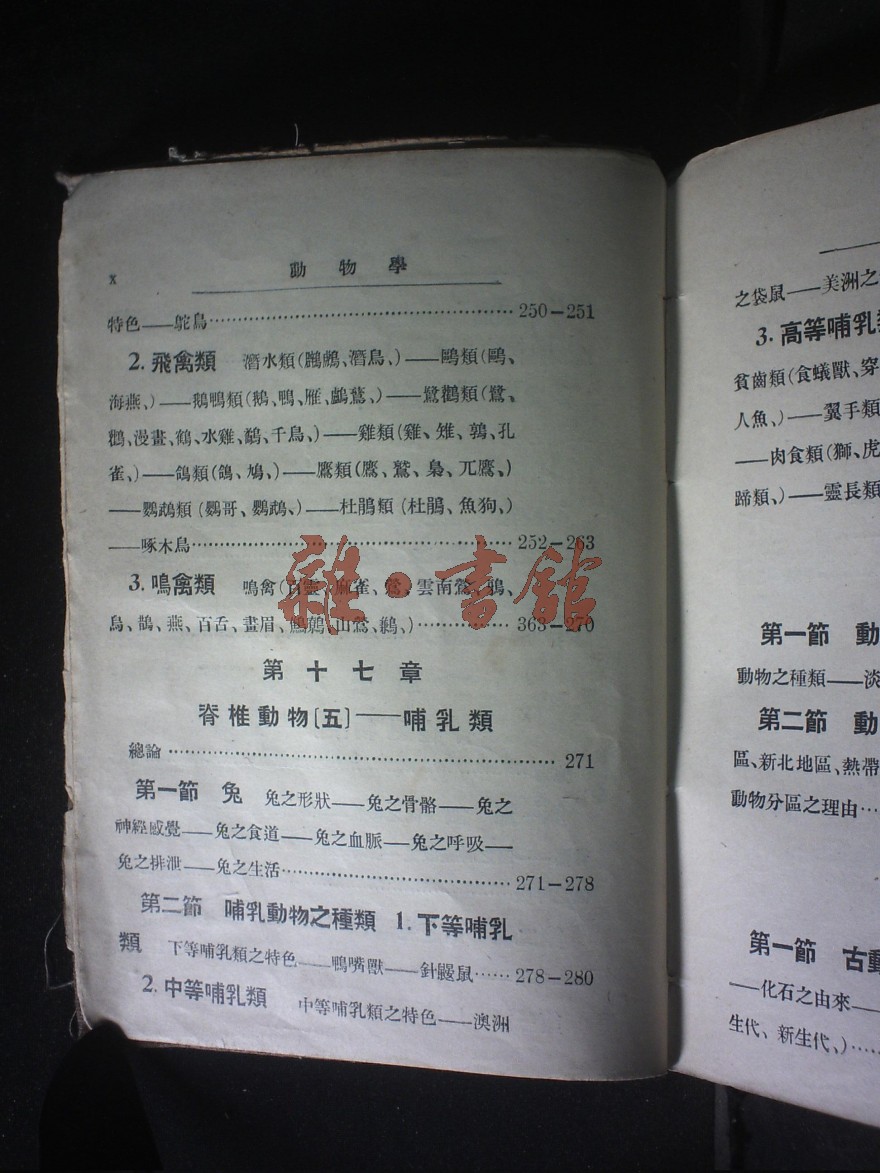 x
動物學
特色——鴕鳥 250—251
2. 飛禽類 潛水類(鸊鷉、潛鳥、)——鷗類(鷗、
海燕、)——鵝鴨類(鵝、鴨、雁、鸕鶿、)——鷺鸛類(鷺、
鸛、漫畫、鶴、水雞、鷸、千鳥、)——雞類(雞、雉、鶉、孔
雀、)——鴿類(鴿、鳩、)——鷹類(鷹、鷲、梟、兀鷹、)
——鸚鵡類(鸚哥、鸚鵡、)——杜鵑類(杜鵑、魚狗、)
——啄木鳥 252—263
3. 鳴禽類 鳴禽(百靈、麻雀、鶯、雲南鶯、鴉、
鳥、鵲、燕、百舌、畫眉、山鶯、鶺、) 363—270
第十七章
脊椎動物〔五〕——哺乳類
總論 271
第一節 兔 兔之形狀——兔之骨骼——兔之
神經感覺——兔之食道——兔之血脈——兔之呼吸——
兔之排泄——兔之生活 271—278
第二節 哺乳動物之種類 1. 下等哺乳
類 下等哺乳類之特色——鴨嘴獸——針鼴鼠 278—280
2. 中等哺乳類 中等哺乳類之特色——澳洲
之袋鼠——美洲之
3. 高等哺乳類
貧齒類(食蟻獸、穿
人魚、)——翼手類
——肉食類(獅、虎
蹄類、)——靈長類
第一節 動
動物之種類——淡
第二節 動
區、新北地區、熱帶
動物分區之理由
第一節 古動
——化石之由來——
生代、新生代、)
雜·書館